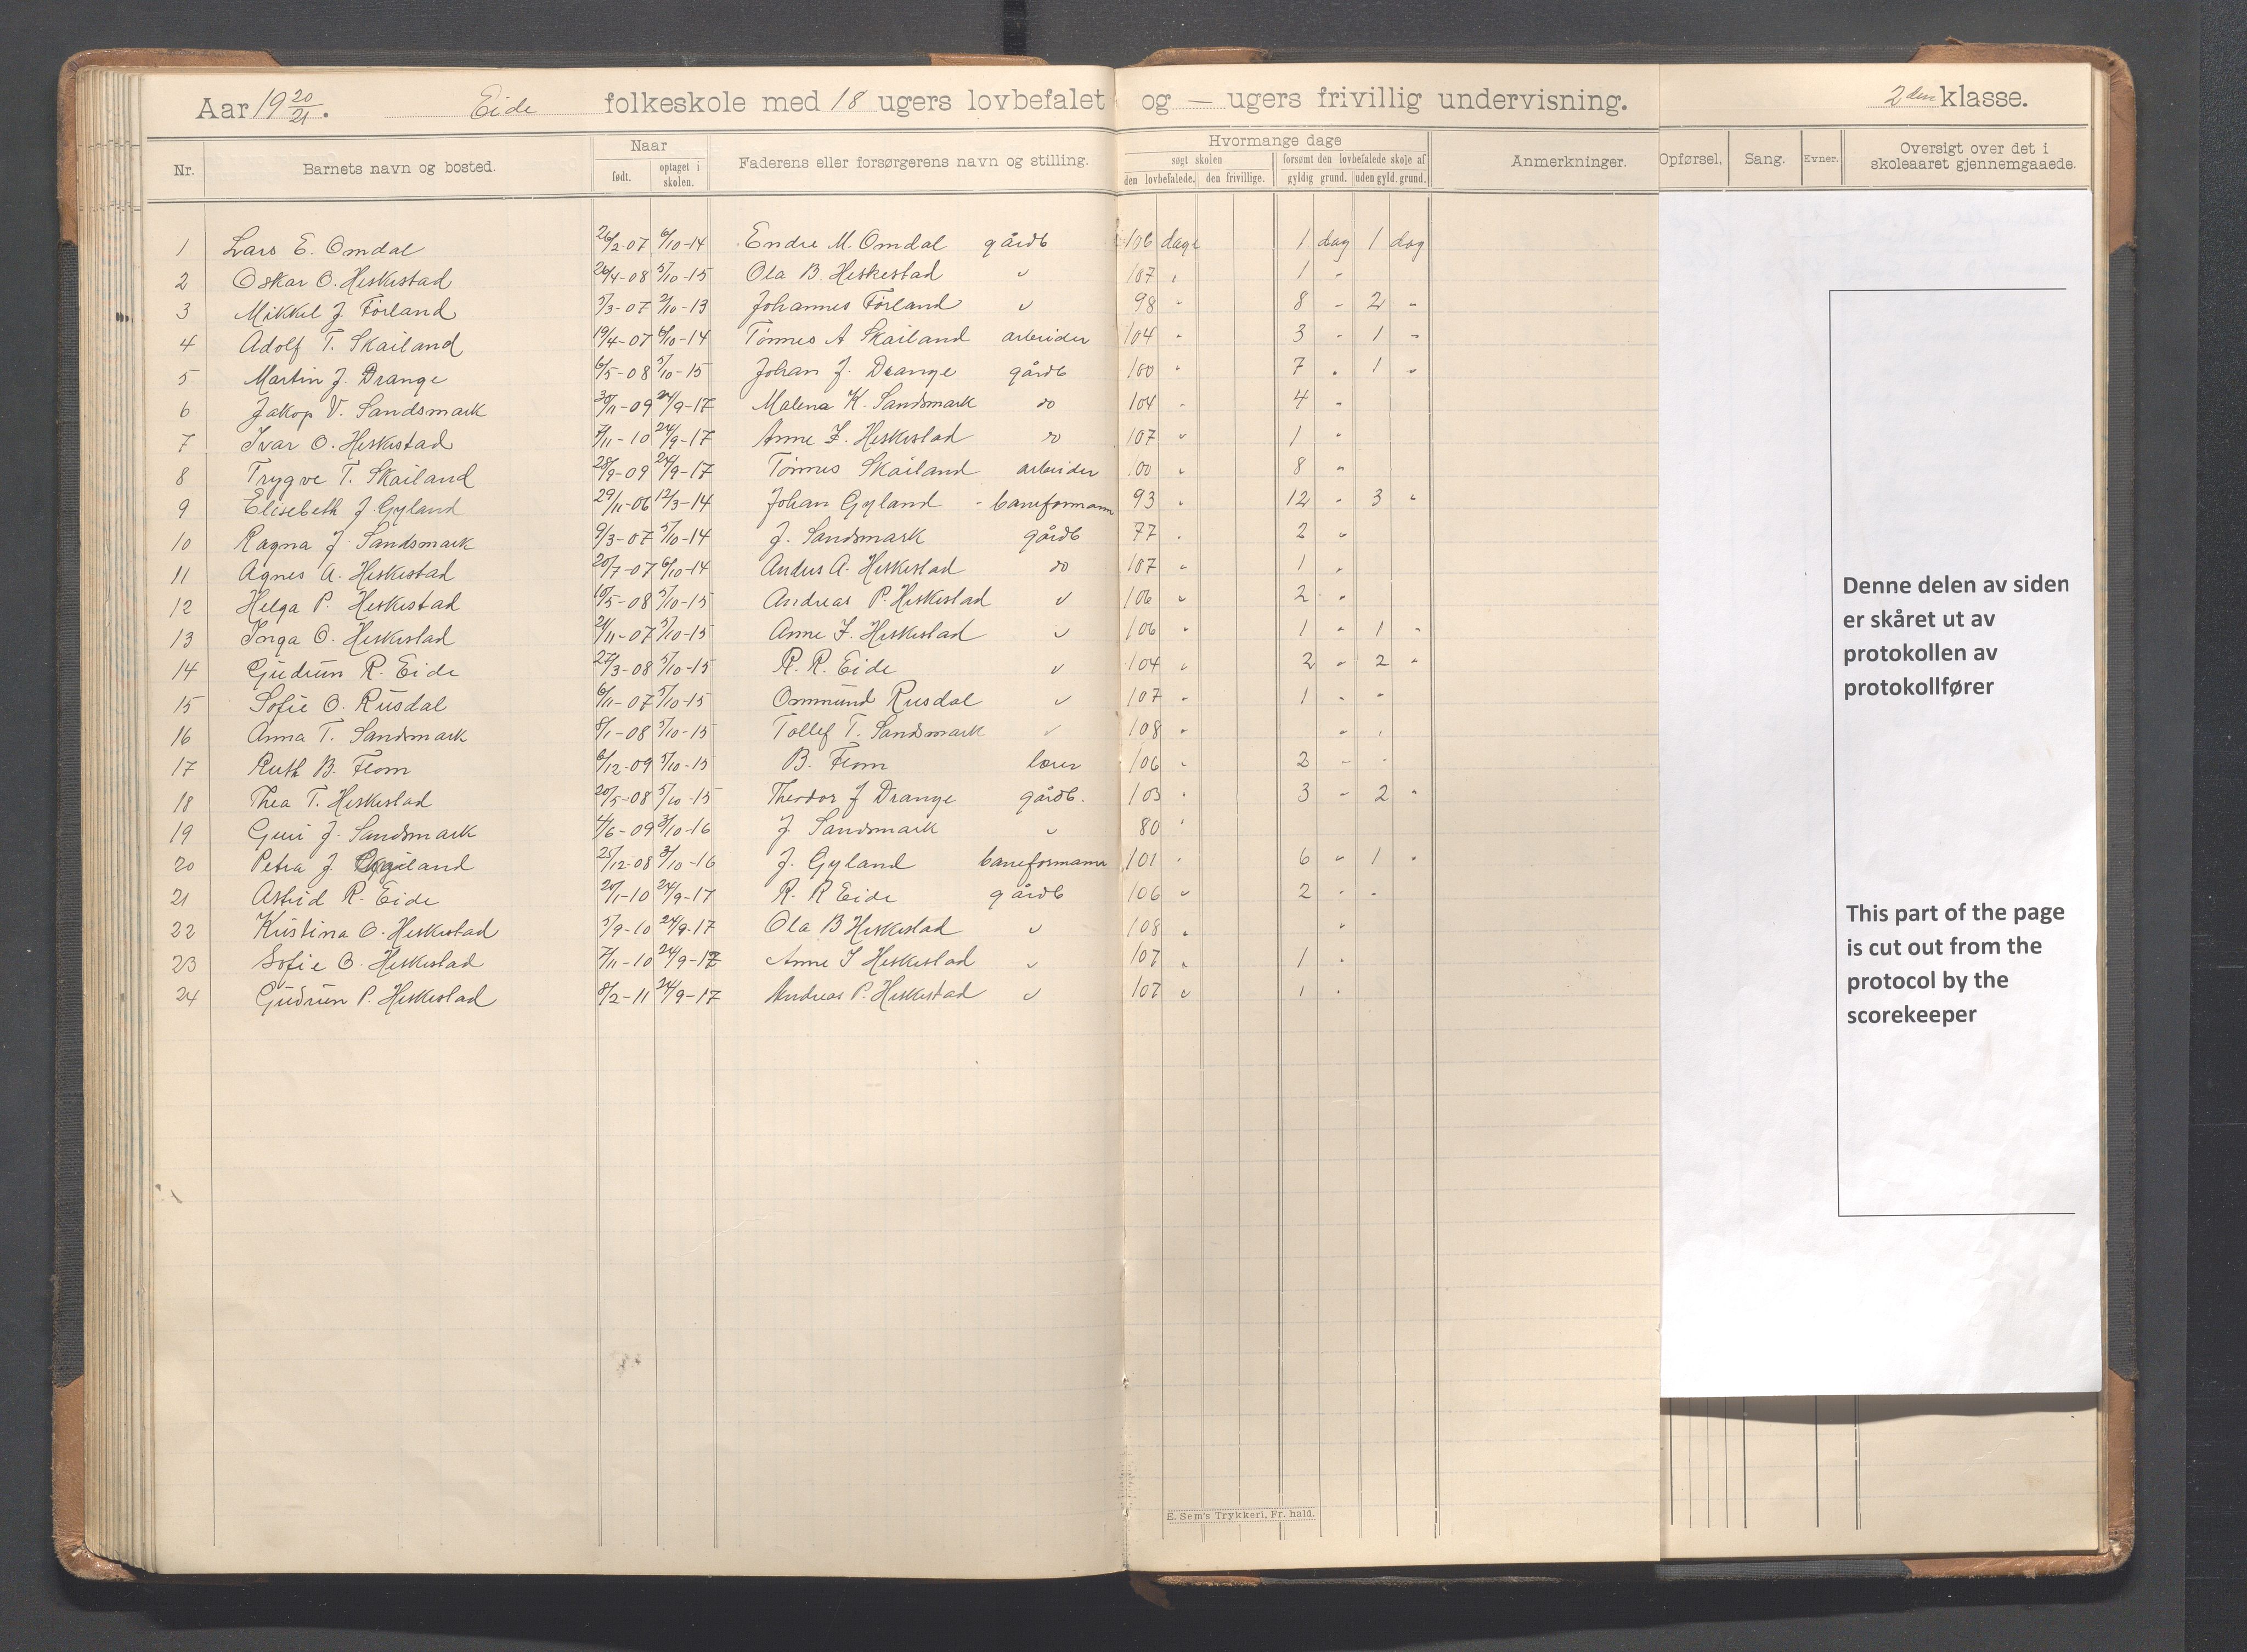 Aar 19 20/21. Eide folkeskole med 18 ugers lovbefalet og — ugers frivillig undervisning. 2den klasse.
Nr. Barnets navn og bosted. Naar født. optaget i skolen. Faderens eller forsørgerens navn og stilling. Hvormange dage søgt skolen den lovbefalede. den frivillige. forsømt den lovbefalede skole af gyldig grund. uden gyld. grund. Anmerkninger. Opførsel. Sang. Evner. Oversigt over det i skoleaaret gjennemgaaede.
1 Lars E. Omdal 26/2-07 6/10-14 Endre M. Omdal gårdb 106 dage 1 dag 1 dag
2 Oskar O. Heskestad 26/4-08 5/10-15 Ola B. Heskestad " 107 " 1 "
3 Mikkel J. Førland 5/3-07 2/10-13 Johannes Førland " 98 " 8 " 2 "
4 Adolf T. Skailand 19/4-07 6/10-14 Tønnes A Skailand arbeider 104 " 3 " 1 "
5 Martin J. Drange 6/5-08 5/10-15 Johan J. Drange gårdb 100 " 7 " 1 "
6 Jakop V. Sandsmark 30/11-09 24/9-17 Malena K. Sandsmark do 104 " 4 "
7 Ivar O. Heskestad 7/11-10 24/9-17 Anne I. Heskestad do 107 " 1 "
8 Trygve T. Skailand 28/9-09 24/9-17 Tønnes Skailand arbeider 100 " 8 "
9 Elisebeth J. Gyland 29/11-06 12/3-14 Johan Gyland - baneformann 93 " 12 " 3 "
10 Ragna J. Sandsmark 9/3-07 5/10-14 J. Sandsmark gårdb 77 " 2 "
11 Agnes A. Heskestad 20/7-07 6/10-14 Andres A. Heskestad do 107 " 1 "
12 Helga P. Heskestad 10/5-08 5/10-15 Andreas P. Heskestad " 106 " 2 "
13 Inga O. Heskestad 21/11-07 5/10-15 Anne I. Heskestad " 106 " 1 " 1 "
14 Gudrun R. Eide 27/3-08 5/10-15 R. R. Eide " 104 " 2 " 2 "
15 Sofie O. Rusdal 6/11-07 5/10-15 Ommund Rusdal " 107 " 1 " "
16 Anna T. Sandsmark 8/1-08 5/10-15 Tollef T. Sandsmark " 108 " " "
17 Ruth B. Flom 6/12-09 5/10-15 B. Flom lærer 106 " 2 " "
18 Thea T. Heskestad 20/5-08 5/10-15 Theodor J Drange gårdb. 103 " 3 " 2 "
19 Guri J. Sandsmark 4/6-09 3/10-16 J Sandsmark " 80 "
20 Petra J. 25/12-08 3/10-16 J. Gyland baneformann 101 " 6 " 1 "
21 Astrid R. Eide 20/1-10 24/9-17 R. R Eide gårdb 106 " 2 " "
22 Kristina O. Heskestad 5/9-10 24/9-17 Ola B Heskestad " 108 " "
23 Sofie O. Heskestad 7/11-10 24/9-17 Anne I Heskestad " 107 " 1 "
24 Gudrun P. Heskestad 8/2-11 24/9-17 Andreas P. Heskestad " 107 " 1 "
Denne delen av siden
er skåret ut av
protokollen av
protokollfører
This part of the page
is cut out from the
protocol by the
scorekeeper
E. Sem's Trykkeri, Fr. hald.